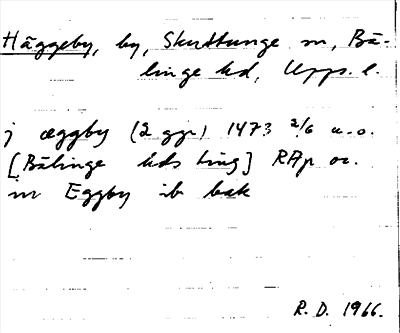 Häggeby, by, Skuttunge sn, Bä-
linge hd, Upps. l.
j æggby (2 ggr) 1473 2/6 u.o.
[Bälinge hds ting] RAp or.
in Eggby ib bak
R. D. 1966.